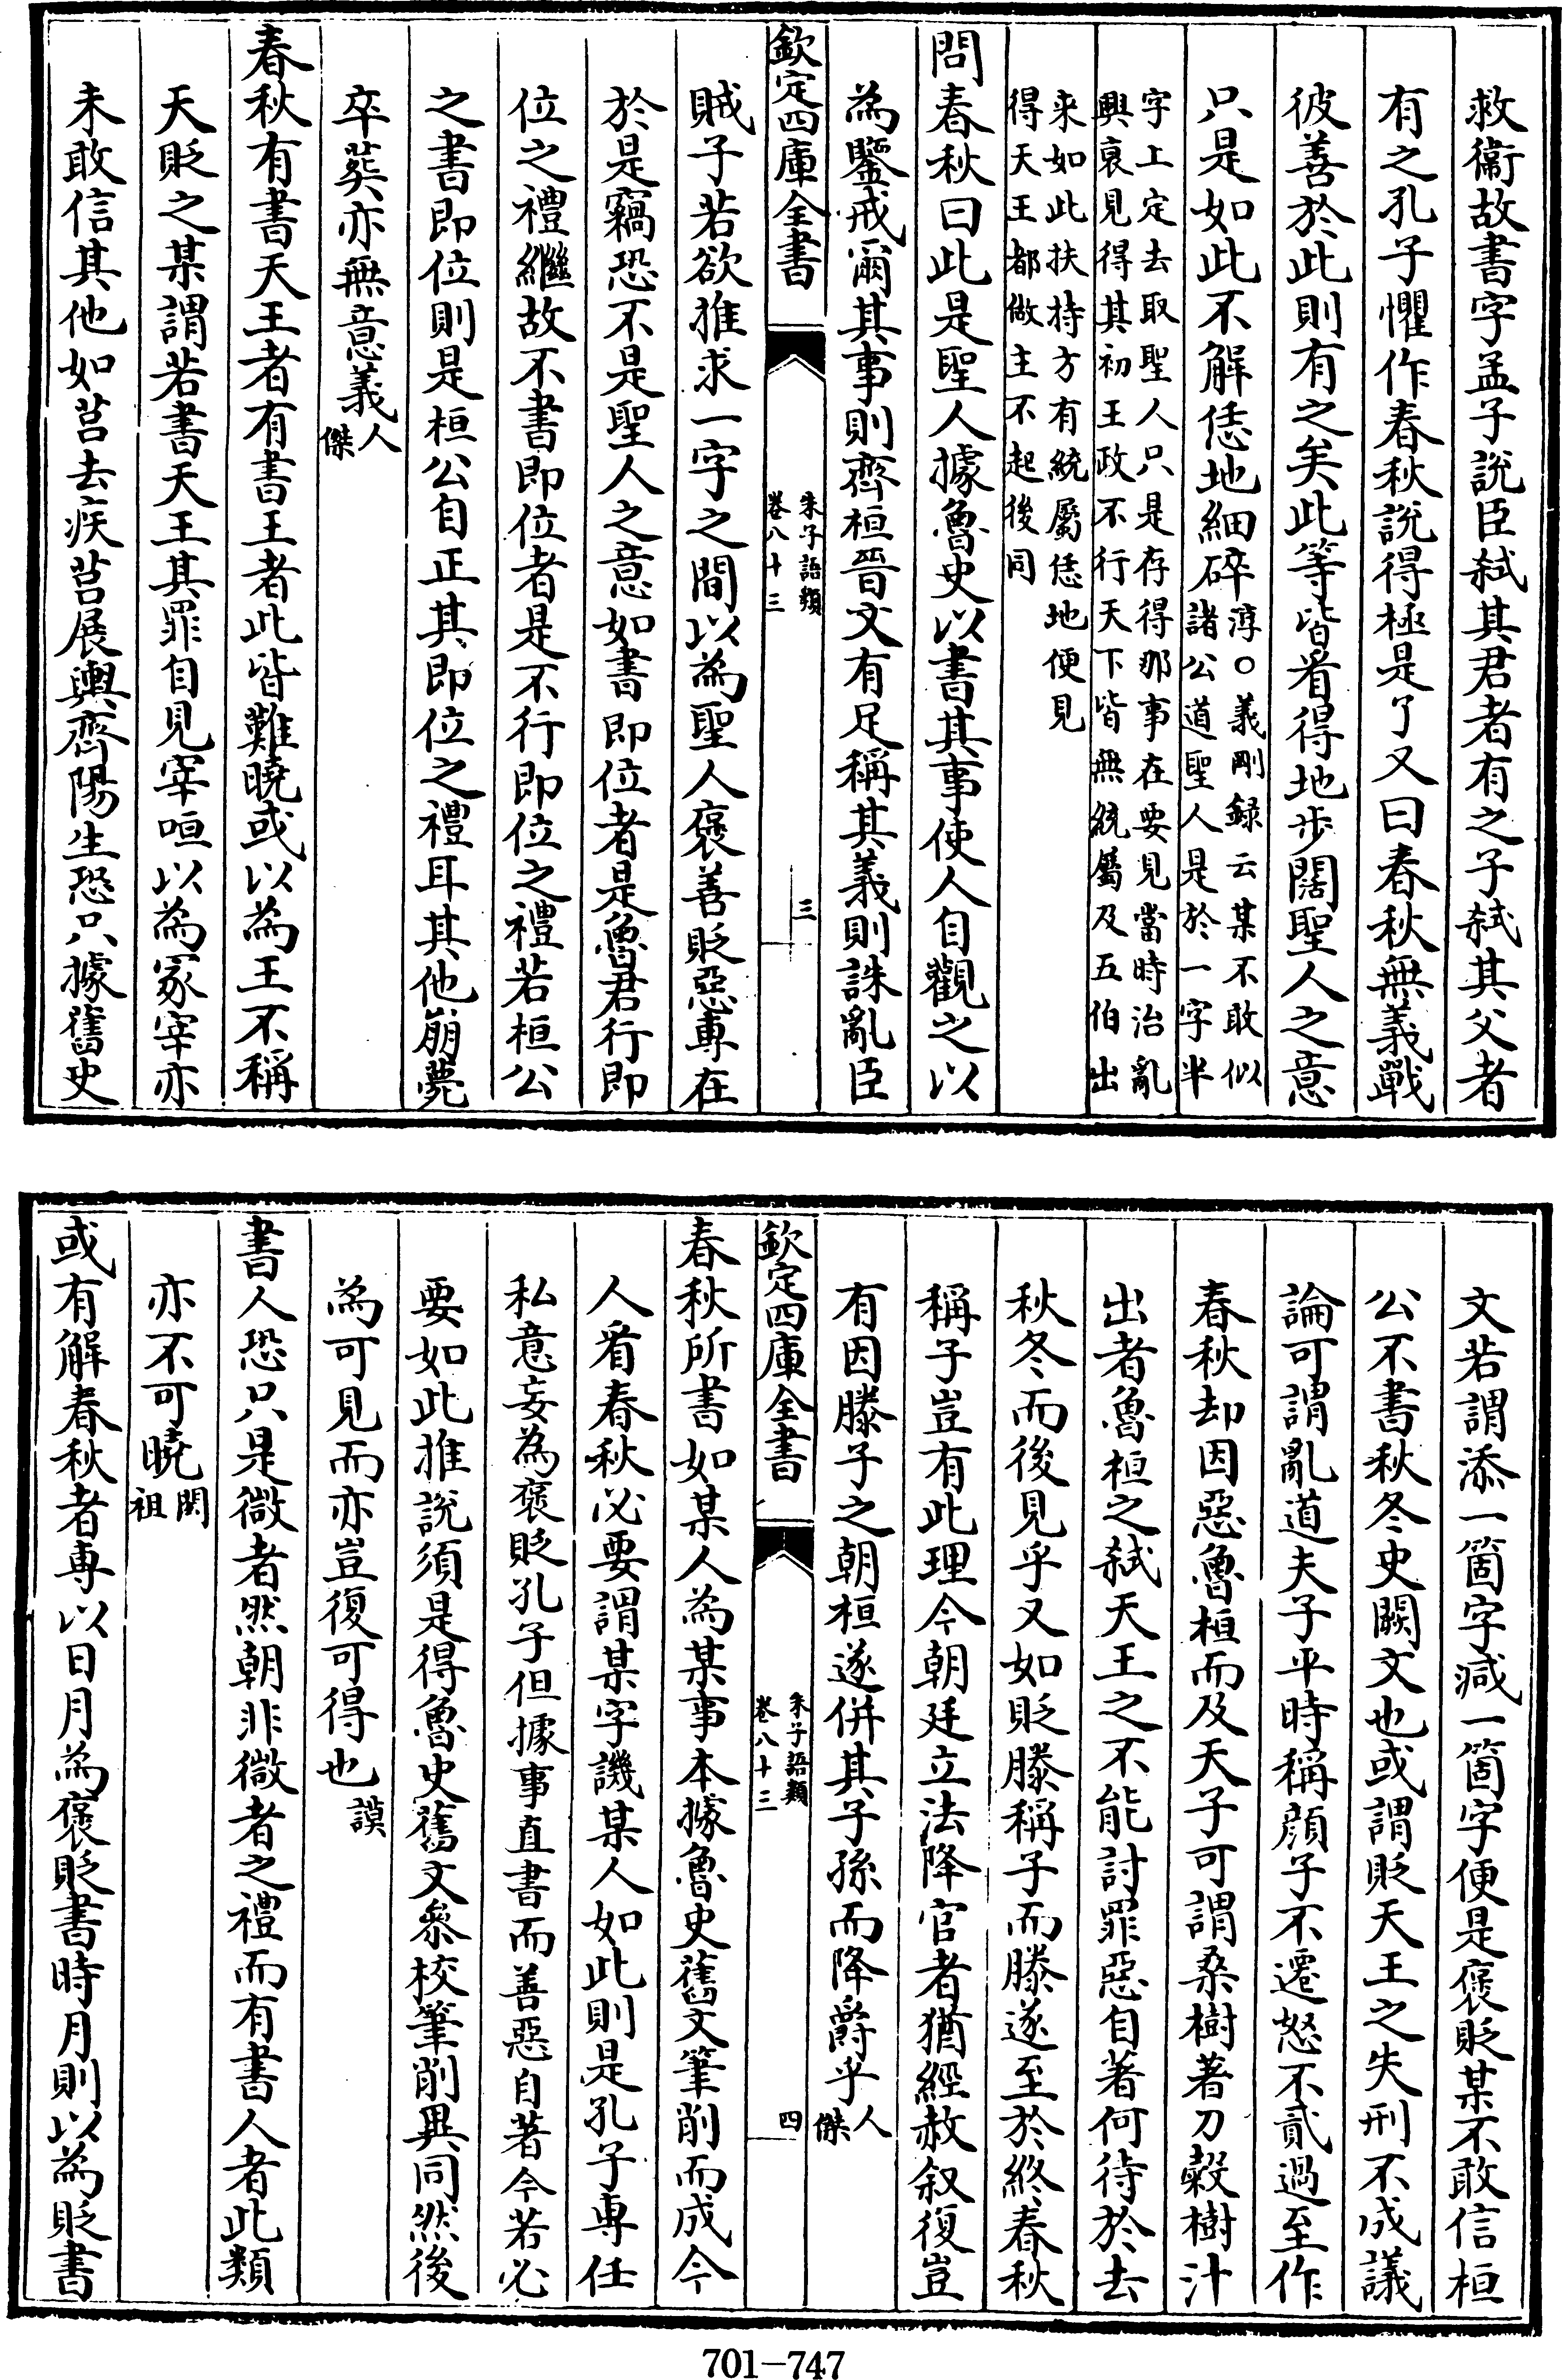 救衞故書字孟子說臣弑其君者有之子弑其父者
有之孔子懼作春秋說得極是了又曰春秋無義戰
彼善於此則有之矣此等皆看得地步闊聖人之意
只是如此不解恁地細碎淳○義剛録云某不敢似
諸公道聖人是於一字半
字上定去取聖人只是存得那事在要見當時治亂
興衰見得其初王政不行天下皆無統屬及五伯出
来如此扶持方有統屬恁地便見
得天王都做主不起後同
問春秋曰此是聖人據魯史以書其事使人自觀之以
為鑒戒爾其事則齊桓晉文有足稱其義則誅亂臣
欽定四庫全書
朱子語類
卷八十三
三
賊子若欲推求一字之間以為聖人褒善貶惡專在
於是竊恐不是聖人之意如書即位者是魯君行即
位之禮繼故不書即位者是不行即位之禮若桓公
之書即位則是桓公自正其即位之禮耳其他崩薨
卒葬亦無意義人
傑
春秋有書天王者有書王者此皆難曉或以為王不稱
天貶之某謂若書天王其罪自見宰咺以為冢宰亦
未敢信其他如莒去疾莒展輿齊陽生恐只據舊史
文若謂添一箇字減一箇字便是褒貶某不敢信桓
公不書秋冬史闕文也或謂貶天王之失刑不成議
論可謂亂道夫子平時稱顔子不遷怒不貳過至作
春秋却因惡魯桓而及天子可謂桑樹著刀榖樹汁
出者魯桓之弑天王之不能討罪惡自著何待於去
秋冬而後見乎又如貶滕稱子而滕遂至於終春秋
稱子豈有此理今朝廷立法降官者猶經赦叙復豈
有因滕子之朝桓遂併其子孫而降爵乎人
傑
欽定四庫全書
朱子語類
卷八十三
四
春秋所書如某人為某事本據魯史舊文筆削而成今
人看春秋必要謂某字譏某人如此則是孔子專任
私意妄為褒貶孔子但據事直書而善惡自著今若必
要如此推說須是得魯史舊文參校筆削異同然後
為可見而亦豈復可得也謨
書人恐只是微者然朝非微者之禮而有書人者此類
亦不可曉閎
祖
或有解春秋者專以日月為褒貶書時月則以為貶書
701—747